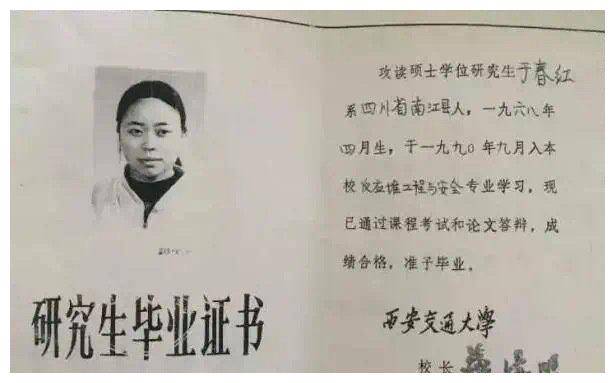 研究生毕业证书
攻读硕士学位研究生于春红
系四川省南江县人，一九六八年
四月生，于一九九〇年九月入本
校反应堆工程与安全专业学习，现
已通过课程考试和论文答辩，成
绩合格，准予毕业。
西安交通大学
校长